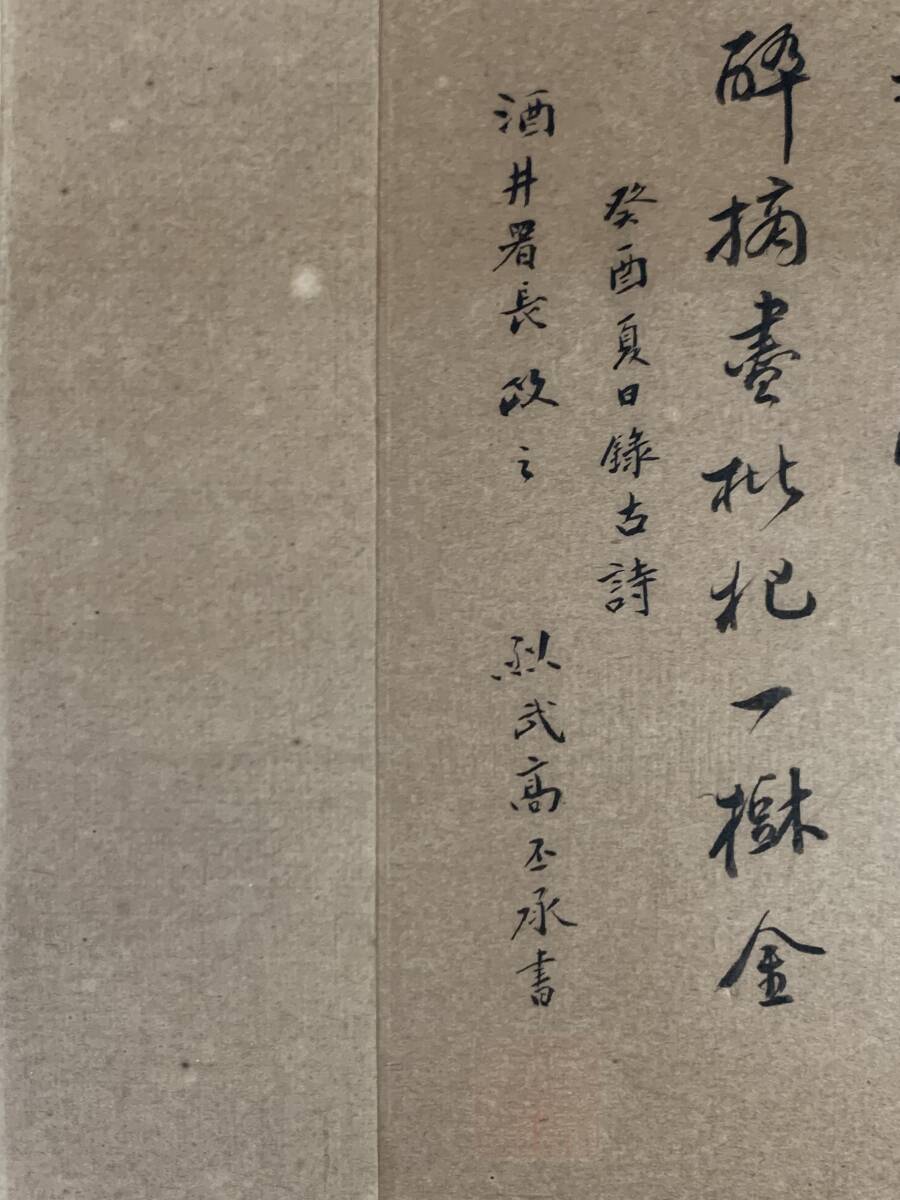 醉摘盡枇杷一樹金
癸酉夏日錄古詩
酒井署長政之 武高丕承書